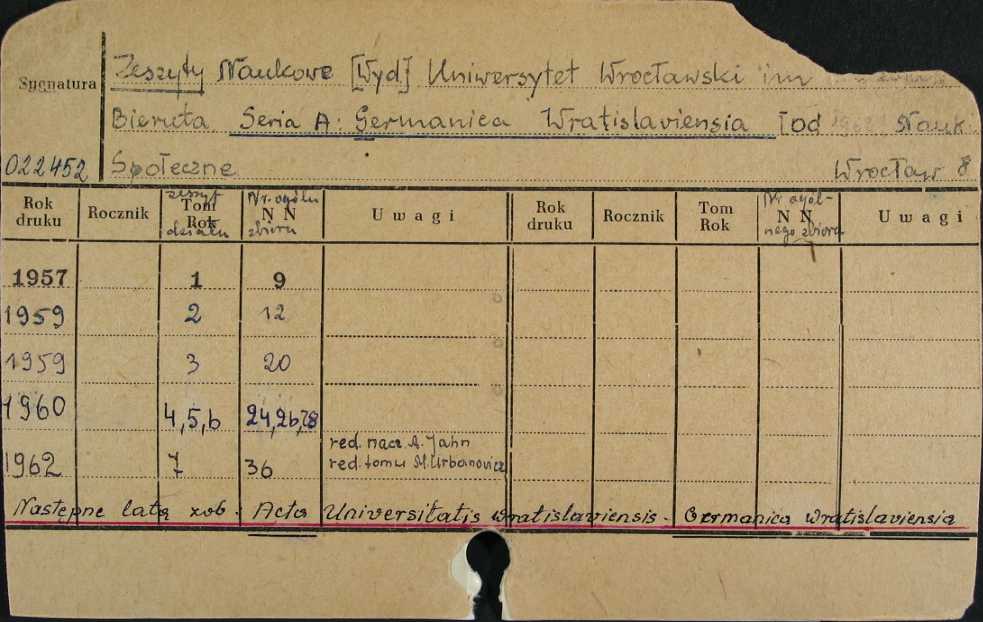 Zeszyty Naukowe [Wyd] Uniwersytet Wrocławski im
Sygnatura
Bieruta Seria A: Germanica Wratislaviensia [od Nauki
022452 Społeczne Wrocław 8
Rok druku Rocznik zeszyt Tom Rok działu Nr. ogóln N N zbioru Uwagi Rok druku Rocznik Tom Rok Nr ogól- N N nego zbioru Uwagi
1957 1 9
1959 2 12
1959 3 20
1960 4,5,6 24,26,28
red. nacz A. Jahn
1962 7 36 red. tomu M. Urbanowicz
Następne lata zob. Acta Universitatis Wratislaviensis - Germanica Wratislaviensia